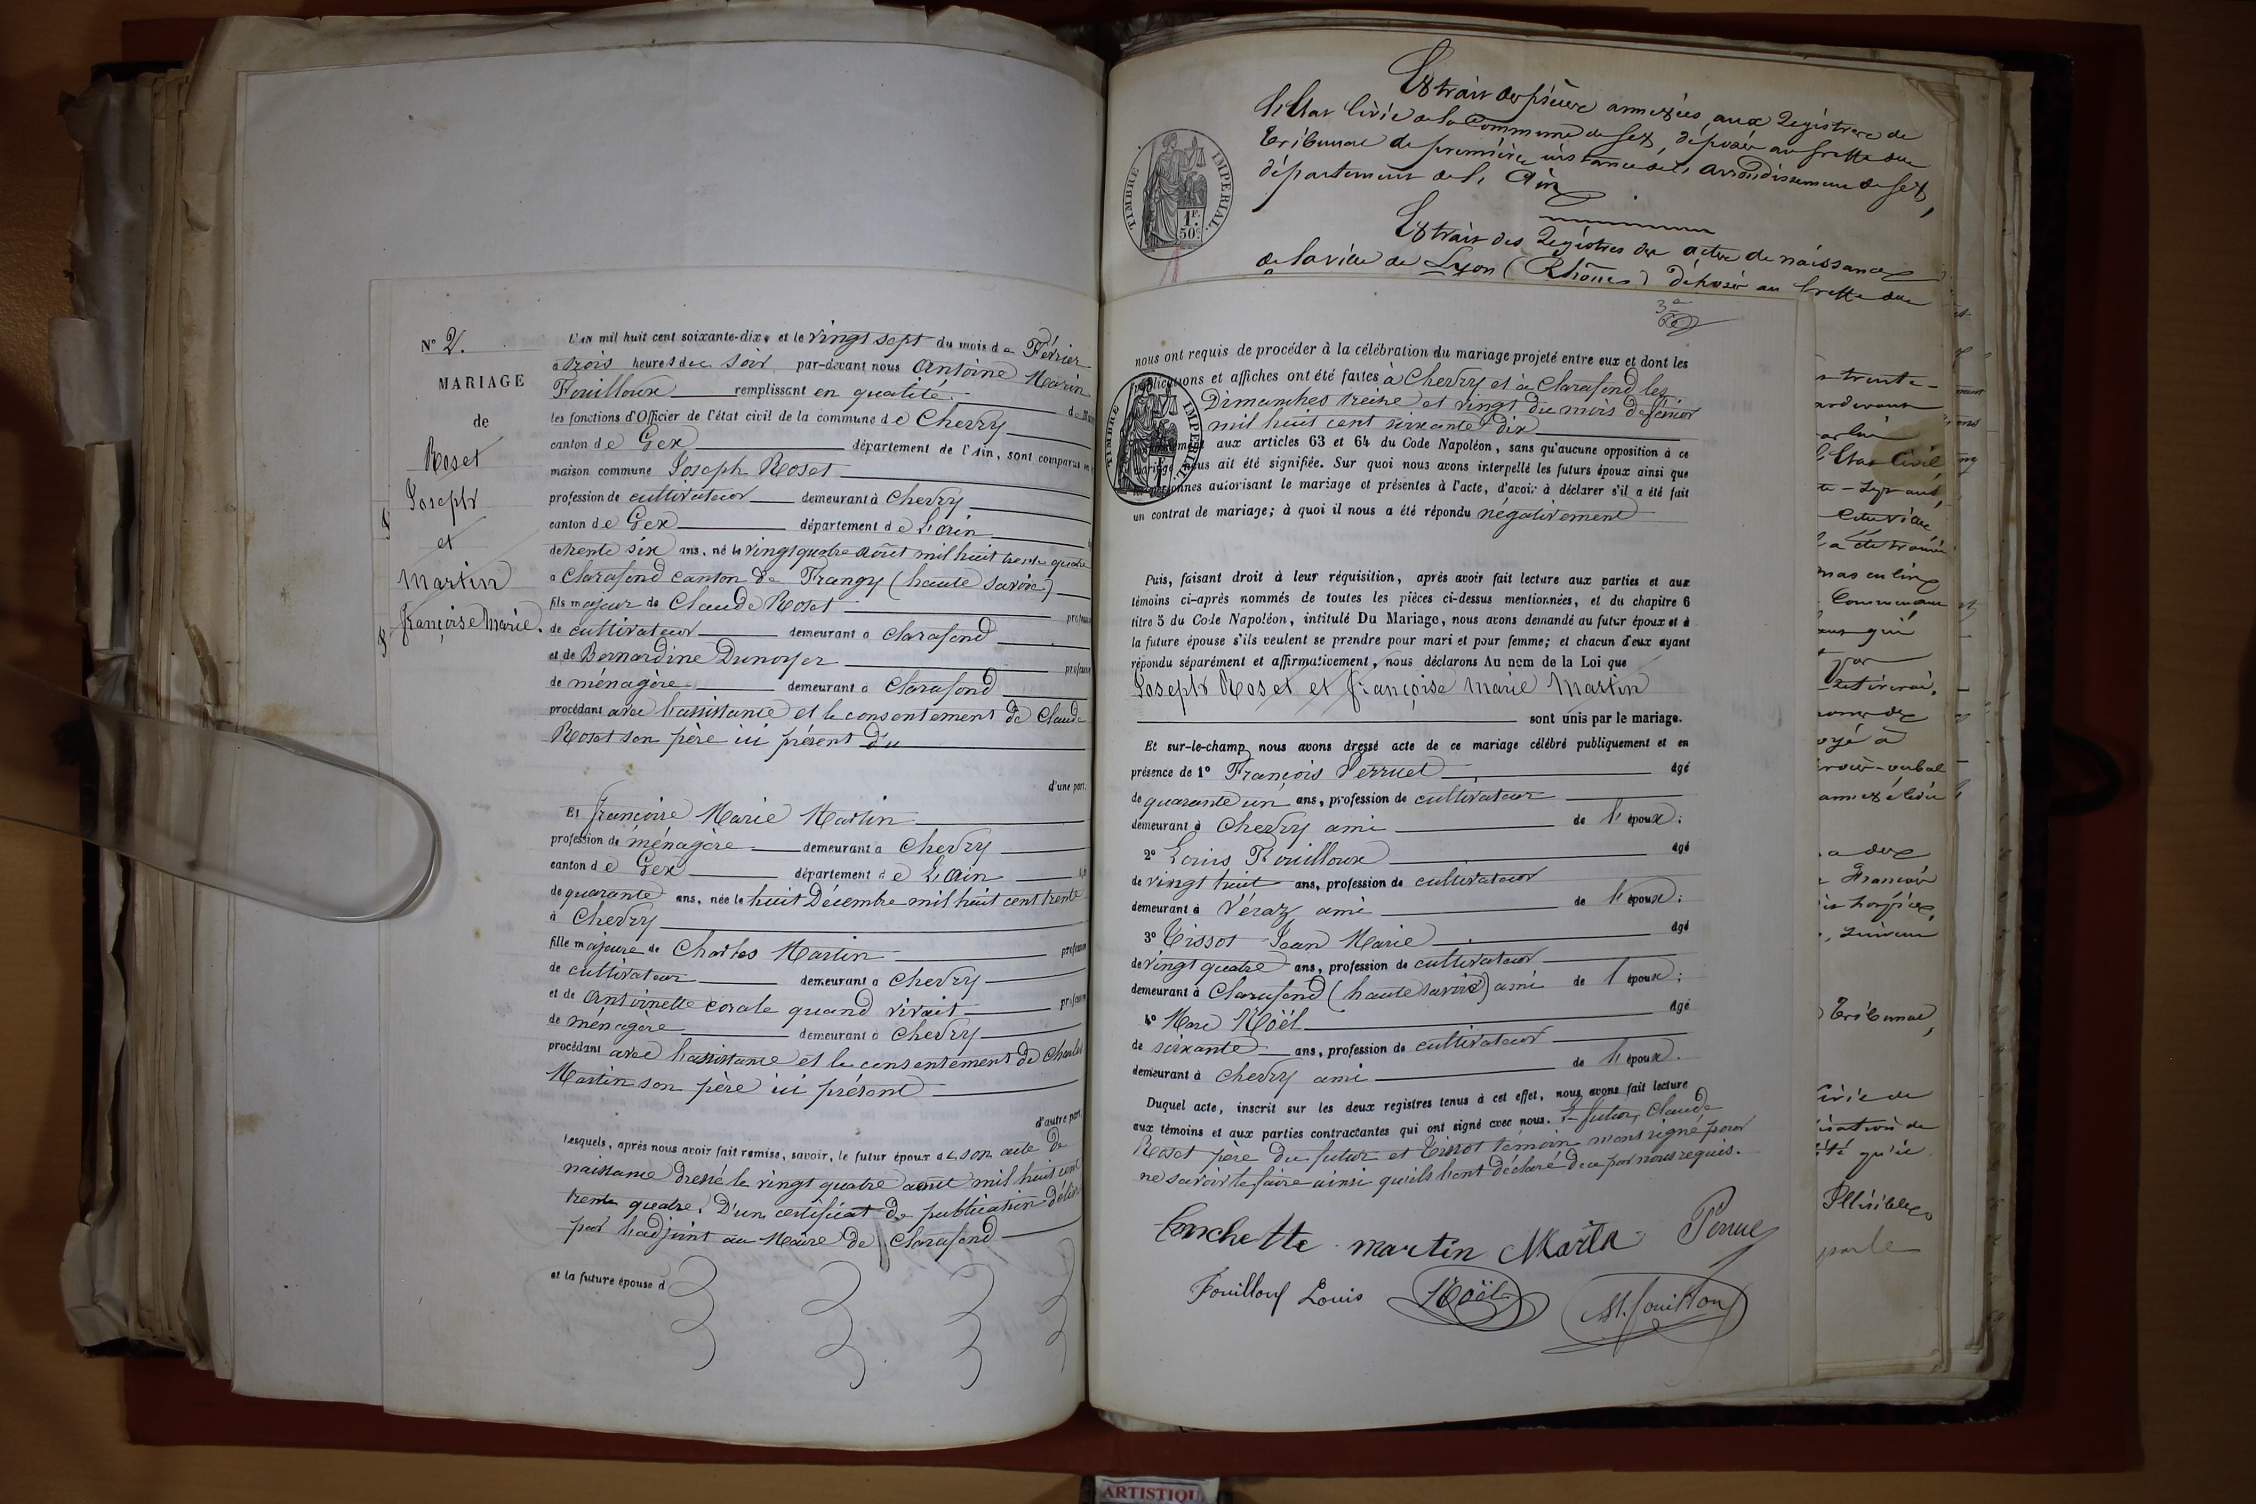 N° 2.
MARIAGE
de
Roset
Joseph
et
Martin
Françoise Marie.
L'AN mil huit cent soixante-dix et le vingt sept du mois de Février
à trois heures du soir par-devant nous Antoine Marin
Fouilloux remplissant en qualité de
les fonctions d'Officier de l'état civil de la commune de Chevry
canton de Gex département de l'Ain, sont comparus en
maison commune Joseph Roset
profession de cultivateur demeurant à Chevry
canton de Gex département de L'Ain
de trente six ans, né le vingt quatre Août mil huit trente quatre
à Clarafond canton de Frangy (haute Savoie)
fils majeur de Claude Roset profession
de cultivateur demeurant à Clarafond
et de Bernardine Dunoyer profession
de ménagère demeurant à Clarafond
procédant avec l'assistance et le consentement de Claude
Roset son père ici présent du
d'une part.
Et Françoise Marie Martin
profession de ménagère demeurant à Chevry
canton de Gex département de L'Ain
de quarante ans, née le huit Décembre mil huit cent trente
à Chevry
fille majeure de Charles Martin profession
de cultivateur demeurant à Chevry
et de Antoinette quand vivait profession
de ménagère demeurant à Chevry
procédant avec l'assistance et le consentement de Charles
Martin son père ici présent
d'autre part.
Lesquels, après nous avoir fait remise, savoir, le futur époux de son acte de
naissance dressé le vingt quatre aout mil huit cent
trente quatre. D'un certificat de publication délivré
par l'adjoint au Maire de Clarafond
et la future épouse d
TIMBRE IMPERIAL.
1F.
50c.
Extrait des pièces annexées aux Registres de
l'Etat Civil de la Commune de Gex, déposés au Greffe du
Tribunal de première instance de l'arrondissement de Gex,
département de l'Ain
Extrait des Registres des actes de naissance
de la ville de Lyon (Rhône) déposés au Greffe du
3e
nous ont requis de procéder à la célébration du mariage projeté entre eux et dont les
publications et affiches ont été faites à Chevry et à Clarafond les
Dimanches treize et vingt du mois de février
mil huit cent soixante dix
aux articles 63 et 64 du Code Napoléon, sans qu'aucune opposition à ce
mariage nous ait été signifiée. Sur quoi nous avons interpellé les futurs époux ainsi que
les personnes autorisant le mariage et présentes à l'acte, d'avoir à déclarer s'il a été fait
un contrat de mariage; à quoi il nous a été répondu négativement
TIMBRE IMPERIAL
Puis, faisant droit à leur réquisition, après avoir fait lecture aux parties et aux
témoins ci-après nommés de toutes les pièces ci-dessus mentionnées, et du chapitre 6
titre 5 du Code Napoléon, intitulé Du Mariage, nous avons demandé au futur époux et à
la future épouse s'ils veulent se prendre pour mari et pour femme; et chacun d'eux ayant
répondu séparément et affirmativement, nous déclarons Au nom de la Loi que
Joseph Roset et Françoise Marie Martin
sont unis par le mariage.
Et sur-le-champ nous avons dressé acte de ce mariage célébré publiquement et en
présence de 1° François Perruet âgé
de quarante un ans, profession de cultivateur
demeurant à Chevry ami de l'époux;
2° Louis Fouilloux âgé
de vingt huit ans, profession de cultivateur
demeurant à Véraz ami de l'époux;
3° Tissot Jean Marie âgé
de vingt quatre ans, profession de cultivateur
demeurant à Clarafond (haute Savoie) ami de l'époux;
4° Marc Noël âgé
de soixante ans, profession de cultivateur
demeurant à Chevry ami de l'époux.
Duquel acte, inscrit sur les deux registres tenus à cet effet, nous avons fait lecture
aux témoins et aux parties contractantes qui ont signé avec nous. Le futur, Claude
Roset père du futur et Tissot témoin n'ont signé pour
ne savoir le faire ainsi qu'ils l'ont déclaré de ce par nous requis.
martin Martin Perruet
Fouilloux Louis Noël M. Fouilloux
l'Etat Civil
Commune
Tribunal,
ARTISTIQU